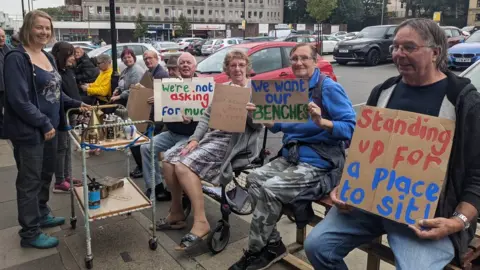 We're not
asking
for mu
We want
our
BENCHES
Standing
up for
a place
to sit!